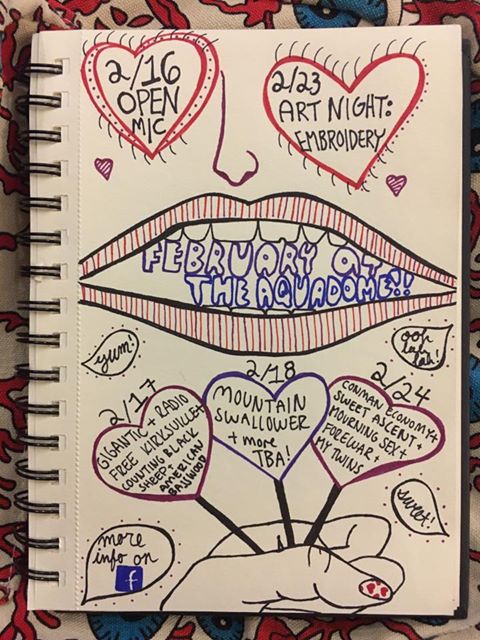 2/16
OPEN
MIC
2/23
ART NIGHT:
EMBROIDERY
FEBRUARY AT
THE AQUADOME!!
yum!
ooh
lah
lah!
2/17
GIGANTIC + RADIO
FREE KIRKSVILLE +
COUNTING BLACK
SHEEP +
AMERICAN
BASSWOOD
2/18
MOUNTAIN
SWALLOWER
+ more
TBA!
2/24
CONMAN ECONOMY +
SWEET ASCENT +
MOURNING SEX +
FOREWAR +
MY TWINS
sweet!
more
info on
f